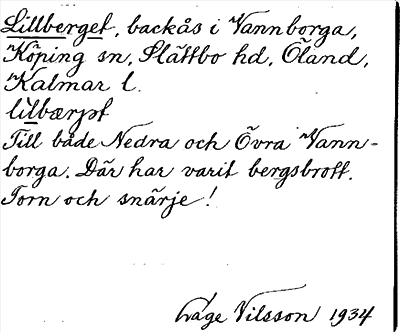 Lillberget, backås i Vannborga,
Köping sn, Slättbo hd, Öland,
Kalmar l.
lilbærjət
Till både Nedra och Övra Vann-
borga. Där har varit bergsbrott.
Torn och snärje!
Åge Nilsson 1934